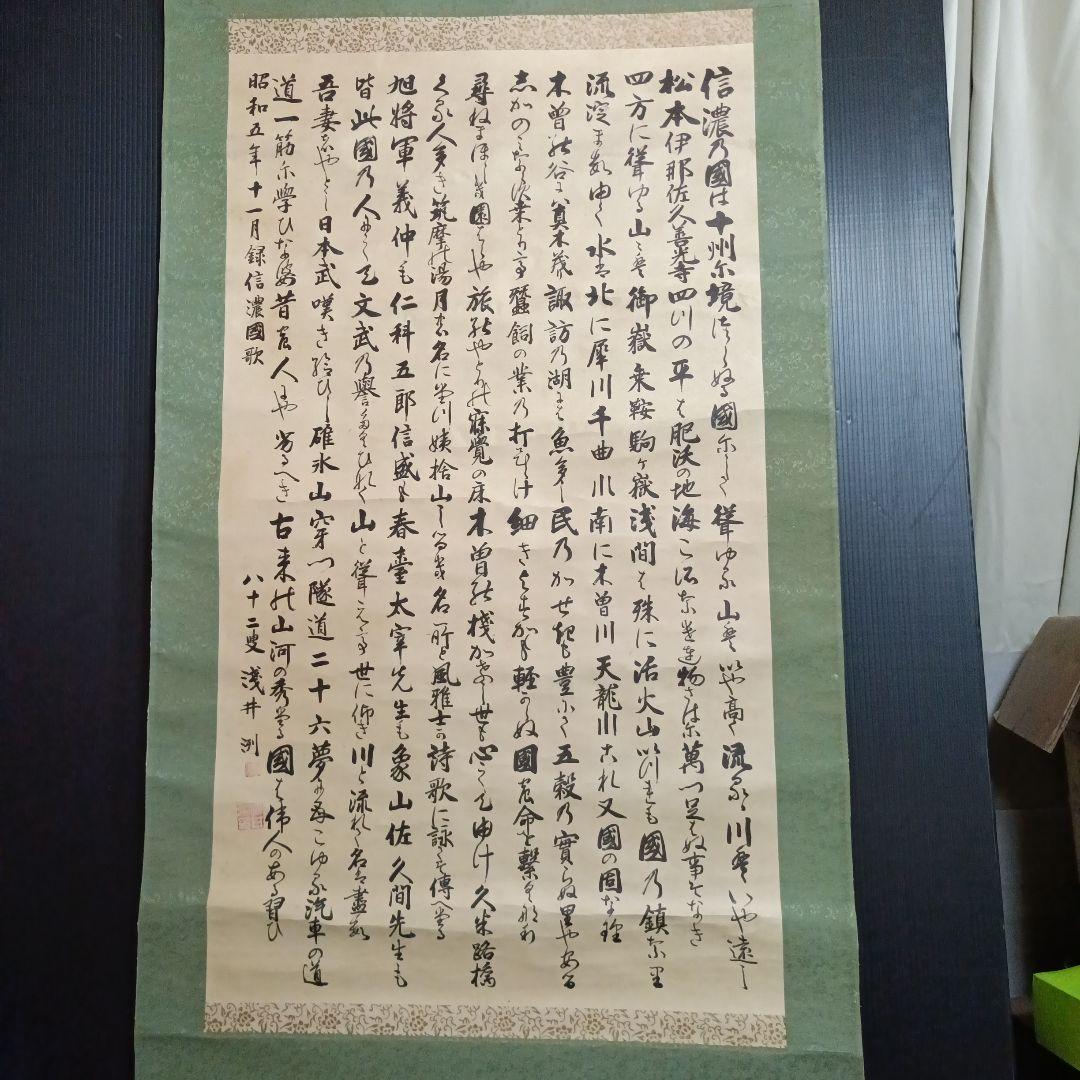 信濃乃國は十州尓境つらぬる國尓して聳ゆる山はいや高く流るゝ川はいや遠し
松本伊那佐久善光寺四川の平は肥沃の地海こそなけれ物さは尓萬つ足らぬ事そなき
四方に聳ゆる山々は御嶽乗鞍駒ヶ嶽浅間は殊に活火山いつれも國乃鎮なり
流淀まずゆく水は北に犀川千曲川南に木曽川天龍川これ又國の固なり
木曽の谷には真木茂り諏訪乃湖には魚多し民乃かせきも豊にて五穀乃實らぬ里やある
しかのみならず桑とりて蠶飼の業乃打ひらけ細きよすかも軽からぬ國の命を繋くなり
尋ねまほしき園はらや旅のやとりの寐覺の床木曽の棧かけし世も心してゆけ久米路橋
くる人多き筑摩の湯月の名にたつ姨捨山しるき名所と風雅士か詩歌に詠てそ傳へたる
旭将軍義仲も仁科五郎信盛も春臺太宰先生も象山佐久間先生も
皆此國乃人にして文武乃譽たくひなく山と聳えて世に仰き川と流れて名は盡す
吾妻はやとし日本武嘆き給ひし碓氷山穿つ隧道二十六夢にもこゆる汽車の道
道一筋尓学ひなは昔の人にや劣るへき古来の山河の秀たる國は偉人のある習ひ
昭和五年十一月録信濃國歌
八十二叟 浅井洌